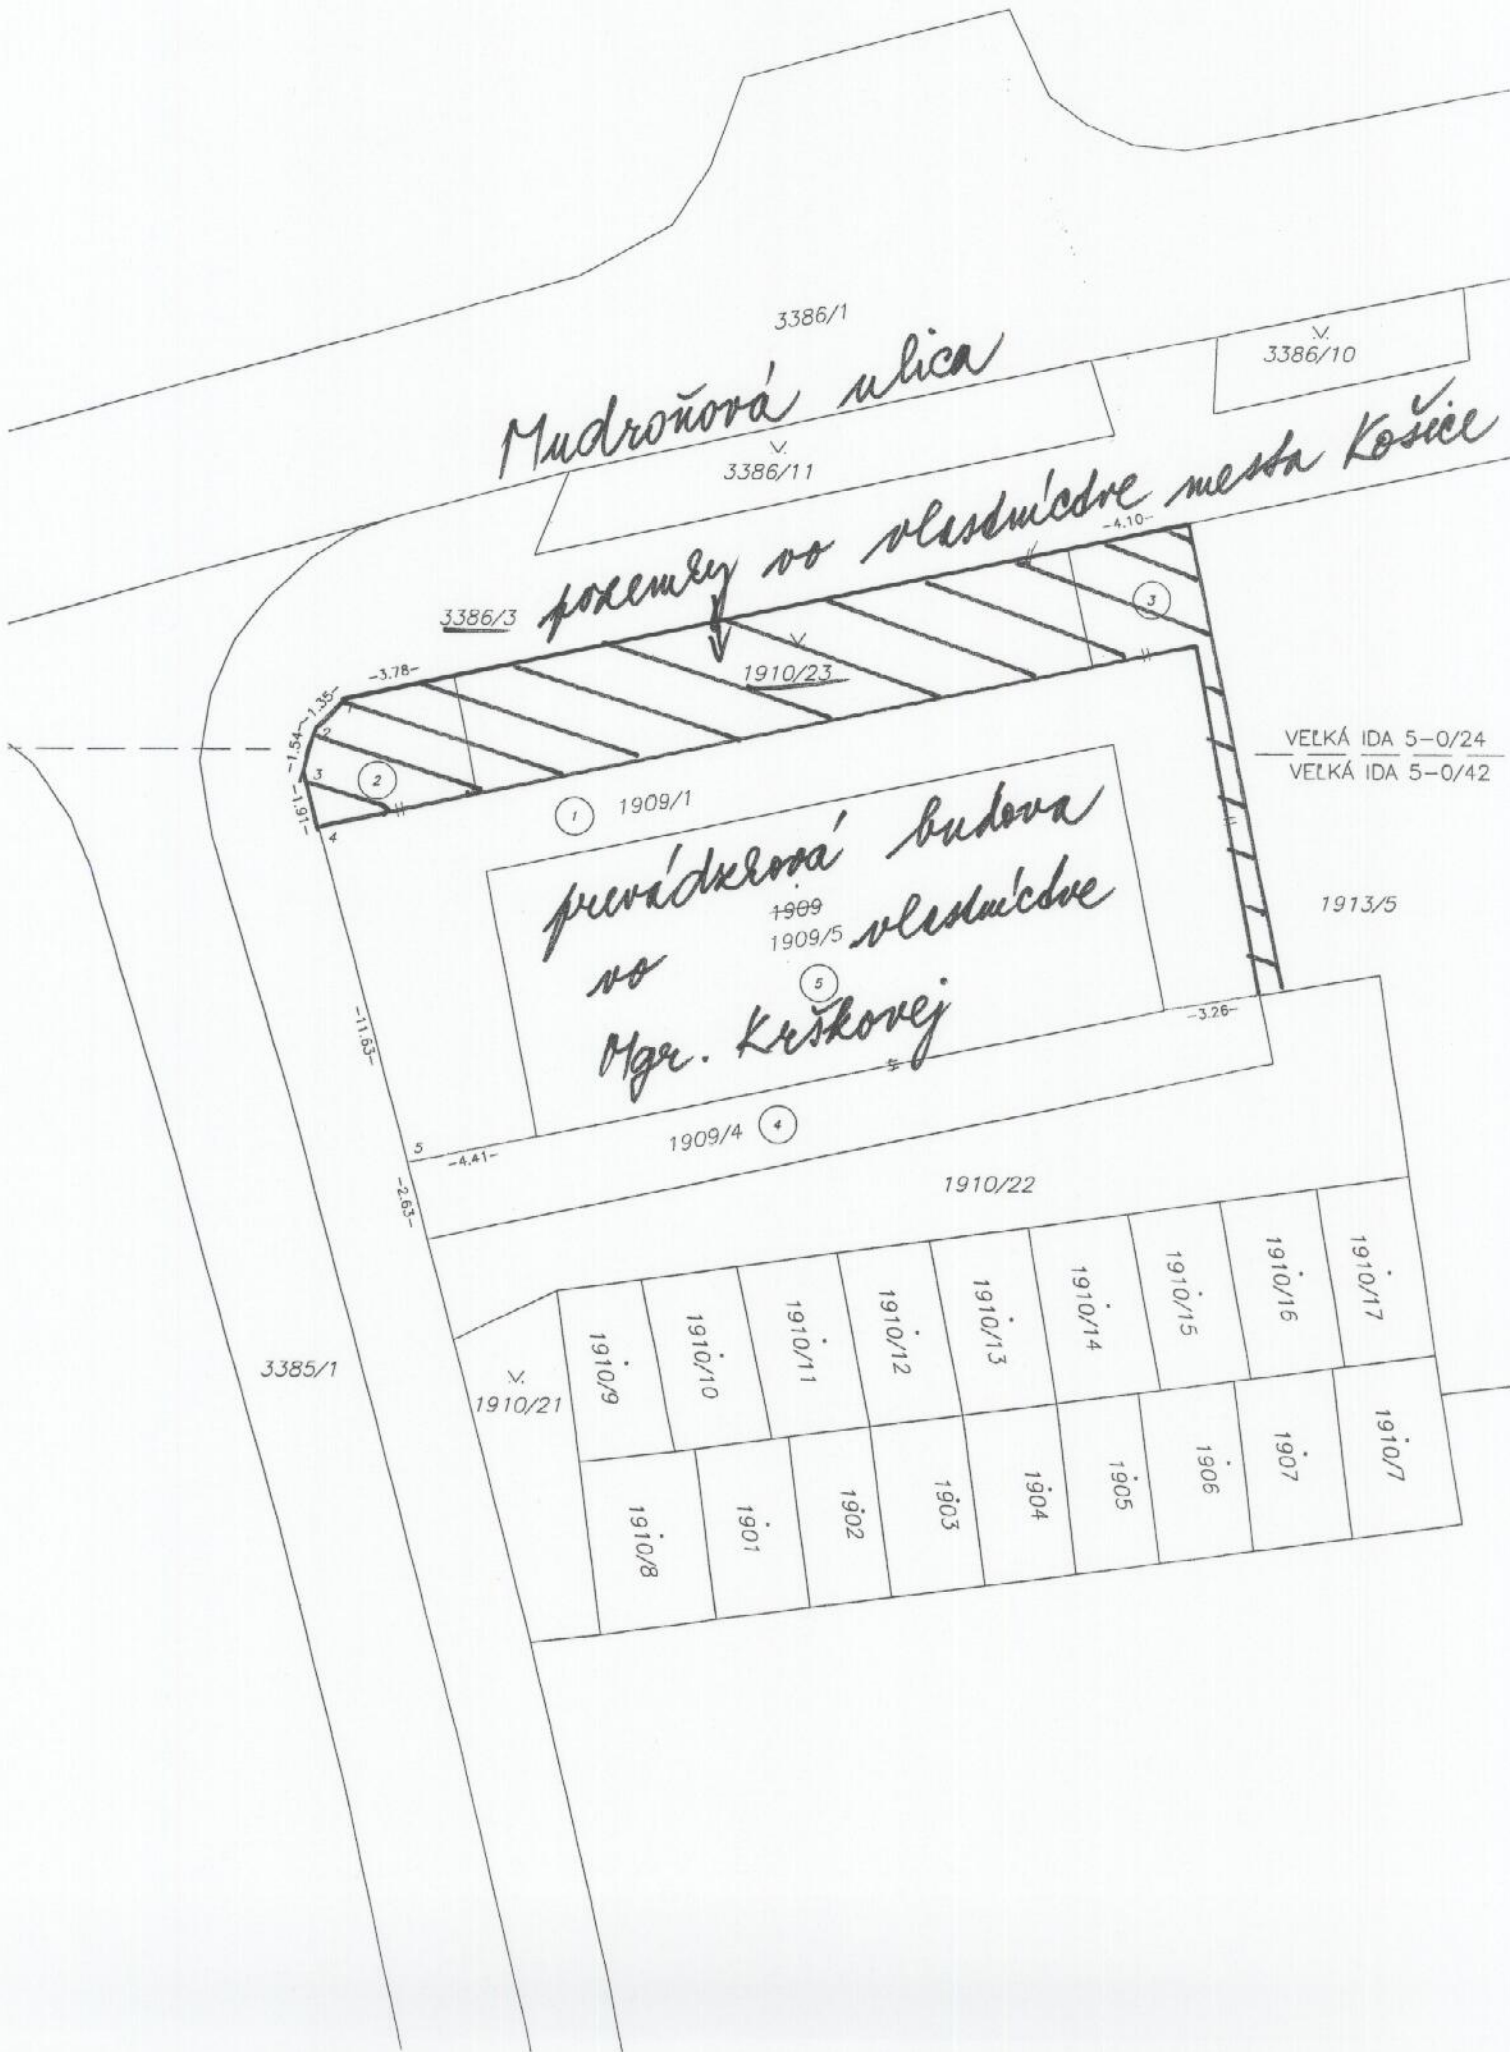 3386/1
Mudroňová ulica
3386/10
3386/11
pozemky vo vlastníctve mesta Košice
-4.10-
3386/3
3
-3.78-
1910/23
-1.35-
1
2
-1.54-
3
2
-1.91-
4
VEĽKÁ IDA 5-0/24
VEĽKÁ IDA 5-0/42
1 1909/1
prevádzková budova
1909
1909/5
vo vlastníctve
5
Mgr. Krškovej
1913/5
-11.63-
-3.26-
5
-4.41-
1909/4 4
-2.63-
1910/22
3385/1
1910/21
1910/9
1910/10
1910/11
1910/12
1910/13
1910/14
1910/15
1910/16
1910/17
1910/8
1901
1902
1903
1904
1905
1906
1907
1910/7